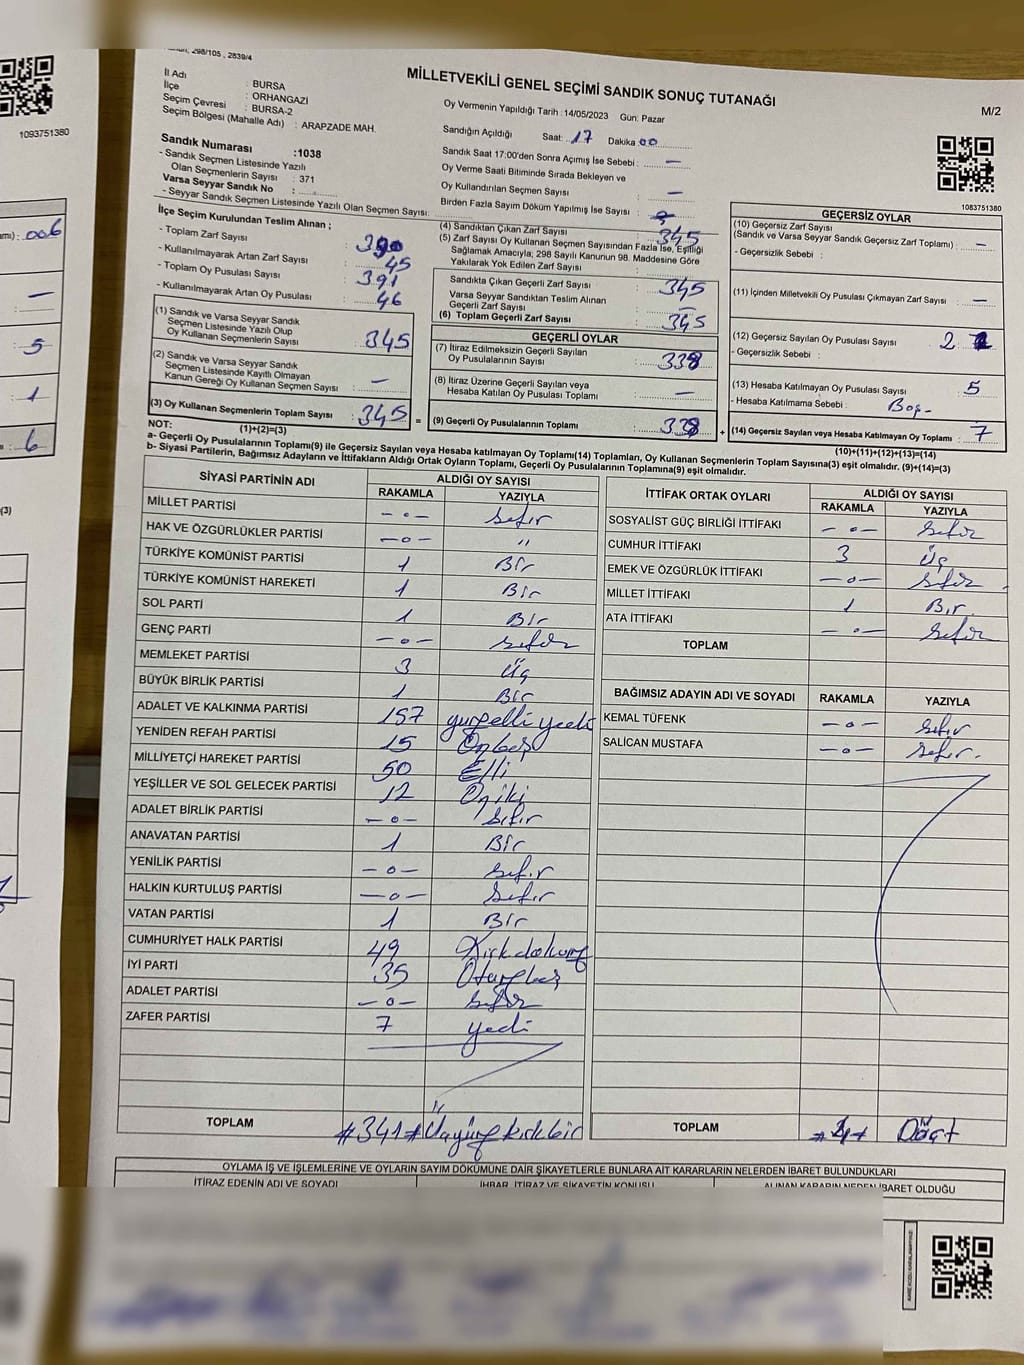 298/105 , 2839/4
MİLLETVEKİLİ GENEL SEÇİMİ SANDIK SONUÇ TUTANAĞI
M/2
1093751380
1083751380
İl Adı : BURSA
İlçe : ORHANGAZİ
Seçim Çevresi : BURSA-2
Seçim Bölgesi (Mahalle Adı) : ARAPZADE MAH.
Sandık Numarası :1038
- Sandık Seçmen Listesinde Yazılı
Olan Seçmenlerin Sayısı : 371
Varsa Seyyar Sandık No :
- Seyyar Sandık Seçmen Listesinde Yazılı Olan Seçmen Sayısı:
Oy Vermenin Yapıldığı Tarih : 14/05/2023 Gün: Pazar
Sandığın Açıldığı Saat: 17 Dakika 00
Sandık Saat 17:00'den Sonra Açımış İse Sebebi : —
Oy Verme Saati Bitiminde Sırada Bekleyen ve
Oy Kullandırılan Seçmen Sayısı —
Birden Fazla Sayım Döküm Yapılmış İse Sayısı :
İlçe Seçim Kurulundan Teslim Alınan ;
- Toplam Zarf Sayısı : 390
- Kullanılmayarak Artan Zarf Sayısı : 45
- Toplam Oy Pusulası Sayısı : 391
- Kullanılmayarak Artan Oy Pusulası : 46
(1) Sandık ve Varsa Seyyar Sandık
Seçmen Listesinde Yazılı Olup
Oy Kullanan Seçmenlerin Sayısı : 345
(2) Sandık ve Varsa Seyyar Sandık
Seçmen Listesinde Kayıtlı Olmayan
Kanun Gereği Oy Kullanan Seçmen Sayısı : —
(3) Oy Kullanan Seçmenlerin Toplam Sayısı : 345
(1)+(2)=(3)
(4) Sandıktan Çıkan Zarf Sayısı : 345
(5) Zarf Sayısı Oy Kullanan Seçmen Sayısından Fazla İse, Eşitliği
Sağlamak Amacıyla; 298 Sayılı Kanunun 98. Maddesine Göre
Yakılarak Yok Edilen Zarf Sayısı :
Sandıkta Çıkan Geçerli Zarf Sayısı : 345
Varsa Seyyar Sandıktan Teslim Alınan
Geçerli Zarf Sayısı :
(6) Toplam Geçerli Zarf Sayısı : 345
GEÇERLİ OYLAR
(7) İtiraz Edilmeksizin Geçerli Sayılan
Oy Pusulalarının Sayısı : 338
(8) İtiraz Üzerine Geçerli Sayılan veya
Hesaba Katılan Oy Pusulası Toplamı : —
= (9) Geçerli Oy Pusulalarının Toplamı : 338 +
GEÇERSİZ OYLAR
(10) Geçersiz Zarf Sayısı
(Sandık ve Varsa Seyyar Sandık Geçersiz Zarf Toplamı) : —
- Geçersizlik Sebebi :
(11) İçinden Milletvekili Oy Pusulası Çıkmayan Zarf Sayısı : —
(12) Geçersiz Sayılan Oy Pusulası Sayısı : 2
- Geçersizlik Sebebi :
(13) Hesaba Katılmayan Oy Pusulası Sayısı : 5
- Hesaba Katılmama Sebebi : Boş-
(14) Geçersiz Sayılan veya Hesaba Katılmayan Oy Toplamı : 7
(10)+(11)+(12)+(13)=(14)
NOT:
a- Geçerli Oy Pusulalarının Toplamı(9) ile Geçersiz Sayılan veya Hesaba katılmayan Oy Toplamı(14) Toplamları, Oy Kullanan Seçmenlerin Toplam Sayısına(3) eşit olmalıdır. (9)+(14)=(3)
b- Siyasi Partilerin, Bağımsız Adayların ve İttifakların Aldığı Ortak Oyların Toplamı, Geçerli Oy Pusulalarının Toplamına(9) eşit olmalıdır.
SİYASİ PARTİNİN ADI ALDIĞI OY SAYISI
RAKAMLA YAZIYLA
MİLLET PARTİSİ -o- Sıfır
HAK VE ÖZGÜRLÜKLER PARTİSİ -o- "
TÜRKİYE KOMÜNİST PARTİSİ 1 Bir
TÜRKİYE KOMÜNİST HAREKETİ 1 Bir
SOL PARTİ 1 Bir
GENÇ PARTİ -o- sıfır
MEMLEKET PARTİSİ 3 Üç
BÜYÜK BİRLİK PARTİSİ 1 Bir
ADALET VE KALKINMA PARTİSİ 157 yüzelli yedi
YENİDEN REFAH PARTİSİ 15 Onbeş
MİLLİYETÇİ HAREKET PARTİSİ 50 Elli
YEŞİLLER VE SOL GELECEK PARTİSİ 12 Oniki
ADALET BİRLİK PARTİSİ -o- Sıfır
ANAVATAN PARTİSİ 1 Bir
YENİLİK PARTİSİ -o- Sıfır
HALKIN KURTULUŞ PARTİSİ -o- Sıfır
VATAN PARTİSİ 1 Bir
CUMHURİYET HALK PARTİSİ 49 Kırkdokuz
İYİ PARTİ 35 Otuzbeş
ADALET PARTİSİ -o- Sıfır
ZAFER PARTİSİ 7 yedi
TOPLAM #341# Üçyüzkırkbir
İTTİFAK ORTAK OYLARI ALDIĞI OY SAYISI
RAKAMLA YAZIYLA
SOSYALİST GÜÇ BİRLİĞİ İTTİFAKI -o- Sıfır
CUMHUR İTTİFAKI 3 Üç
EMEK VE ÖZGÜRLÜK İTTİFAKI -o- Sıfır
MİLLET İTTİFAKI 1 Bir
ATA İTTİFAKI -o- Sıfır
TOPLAM
BAĞIMSIZ ADAYIN ADI VE SOYADI RAKAMLA YAZIYLA
KEMAL TÜFENK -o- Sıfır
SALİCAN MUSTAFA -o- Sıfır.
TOPLAM #4# Dört
OYLAMA İŞ VE İŞLEMLERİNE VE OYLARIN SAYIM DÖKÜMÜNE DAİR ŞİKAYETLERLE BUNLARA AİT KARARLARIN NELERDEN İBARET BULUNDUKLARI
İTİRAZ EDENİN ADI VE SOYADI İHBAR, İTİRAZ VE ŞİKAYETİN KONUSU ALINAN KARARIN NEDEN İBARET OLDUĞU
006
—
5
1
6
(3)